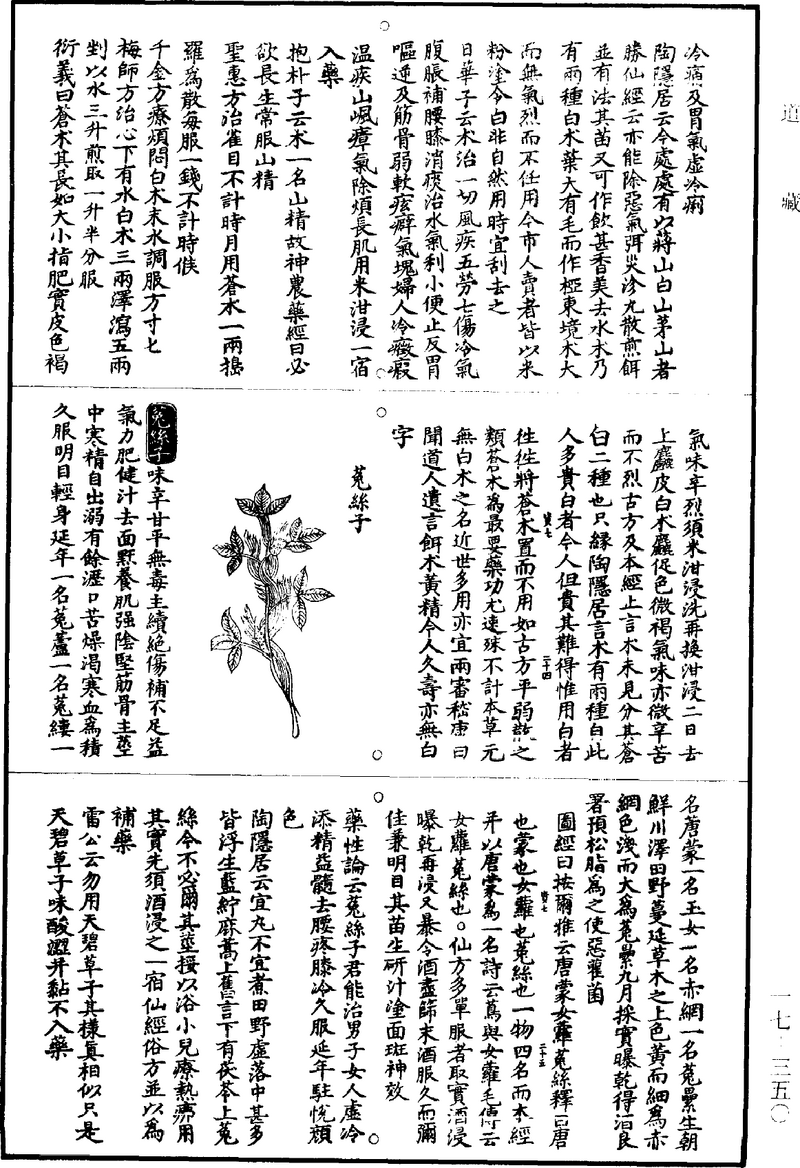 道藏
冷痛及胃氣虛冷痢
陶隱居云今處處有以蔣山白山茅山者
勝仙經云亦能除惡氣弭災沴丸散煎餌
並有法其苗又可作飲甚香美去水朮乃
有兩種白朮葉大有毛而作椏東境朮大
而無氣烈而不任用今市人賣者皆以米
粉塗令白非自然用時宜刮去之
日華子云朮治一切風疾五勞七傷冷氣
腹脹補腰膝消痰治水氣利小便止反胃
嘔逆及筋骨弱軟痃癖氣塊婦人冷癥瘕
温疾山嵐瘴氣除煩長肌用米泔浸一宿
入藥
抱朴子云朮一名山精故神農藥經曰必
欲長生常服山精
聖惠方治雀目不計時月用蒼朮一兩擣
羅爲散每服一錢不計時候
千金方療煩悶白朮末水調服方寸七
梅師方治心下有水白朮三兩澤瀉五兩
剉以水三升煎取一升半分服
衍義曰蒼朮其長如大小指肥實皮色褐
氣味辛烈須米泔浸洗再換泔浸二日去
上麤皮白朮麤促色微褐氣味亦微辛苦
而不烈古方及本經止言朮未見分其蒼
白二種也只緣陶隱居言朮有兩種自此
人多貴白者今人但貴其難得惟用白者
往往將蒼朮置而不用如古方平胃散之
類蒼朮爲最要藥功尤速殊不計本草元
無白朮之名近世多用亦宜兩審嵇康曰
聞道人遺言餌朮黃精令人久壽亦無白
字
菟絲子
菟絲子味辛甘平無毒主續絶傷補不足益
氣力肥健汁去面䵟養肌强陰堅筋骨主莖
中寒精自出溺有餘瀝口苦燥渴寒血爲積
久服明目輕身延年一名菟蘆一名菟縷一
名蓎蒙一名玉女一名赤網一名菟纍生朝
鮮川澤田野蔓延草木之上色黃而細爲赤
網色淺而大爲菟纍九月採實曝乾得酒良
署預松脂爲之使惡雚菌
圖經曰按爾雅云唐蒙女蘿菟絲釋曰唐
也蒙也女蘿也菟絲也一物四名而本經
并以唐蒙爲一名詩云蔦與女蘿毛傳云
女蘿菟絲也○仙方多單服者取實酒浸
曝乾再浸又暴令酒盡篩末酒服久而彌
佳兼明目其苗生研汁塗面斑神效
藥性論云菟絲子君能治男子女人虛冷
添精益髓去腰疼膝冷久服延年駐悅顔
色
陶隱居云宜丸不宜煮田野虛落中甚多
皆浮生藍紵麻蒿上舊言下有茯苓上菟
絲今不必爾其莖挼以浴小兒療熱痱用
其實先須酒浸之一宿仙經俗方並以爲
補藥
雷公云勿用天碧草子其樣真相似只是
天碧草子味酸澀并黏不入藥
一七·三五〇